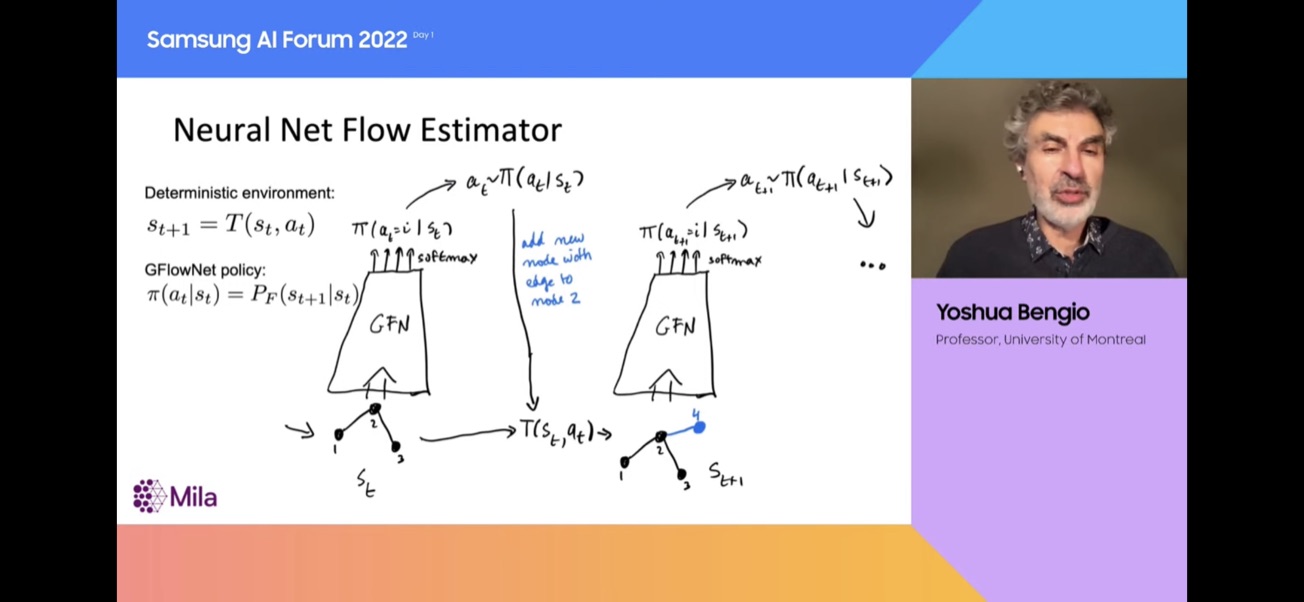 Samsung AI Forum 2022 Day 1
Neural Net Flow Estimator
Deterministic environment:
s_{t+1} = T(s_t, a_t)
GFlowNet policy:
π(a_t|s_t) = P_F(s_{t+1}|s_t)
a_t ~ π(a_t|s_t)
π(a_t=i|s_t)
softmax
GFN
add new
node with
edge to
node 2
1
2
3
s_t
T(s_t, a_t)
a_{t+1} ~ π(a_{t+1}|s_{t+1})
...
π(a_{t+1}=i|s_{t+1})
softmax
GFN
4
1
2
3
s_{t+1}
Mila
Yoshua Bengio
Professor, University of Montreal